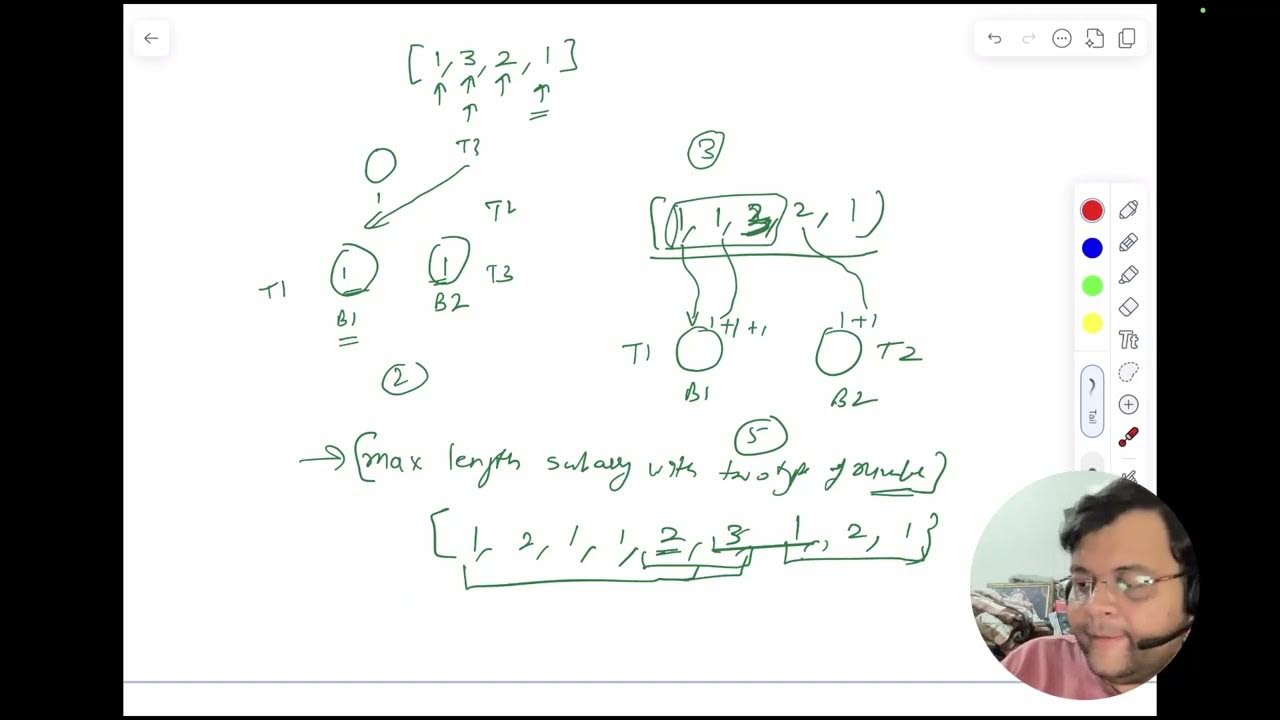 [1, 3, 2, 1]
T3
1
T2
T1 1 1 T3
B1 B2
2
3
(1, 1, 2, 2, 1)
1+1+1 1+1
T1 T2
B1 B2
5
→ [max length subarry with two type of number]
[1, 2, 1, 1, 2, 3, 1, 2, 1]
Tt
Tail